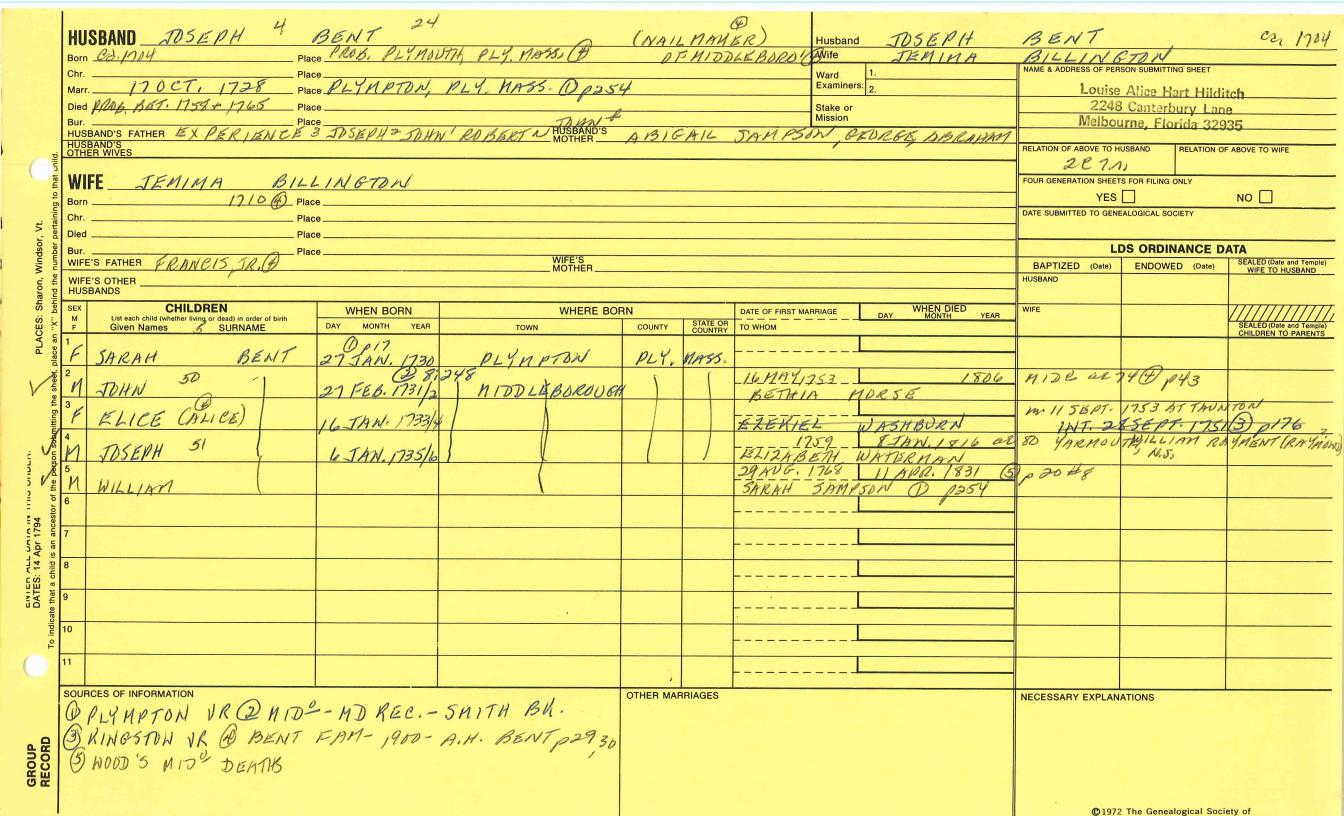 HUSBAND JOSEPH 4 BENT 24 (NAILMAKER) ④
Born Ca. 1704 Place PROB. PLYMOUTH, PLY. MASS. ④ OF MIDDLEBORO
Chr. Place
Marr. 17 OCT. 1728 Place PLYMPTON, PLY. MASS. ① p254
Died PROB. BET. 1758 + 1765 Place
Bur. Place JOHN
HUSBAND'S FATHER EXPERIENCE 3 JOSEPH 2 JOHN 1 ROBERT HUSBAND'S MOTHER ABIGAIL SAMPSON, GEORGE, ABRAHAM
HUSBAND'S OTHER WIVES
WIFE JEMIMA BILLINGTON
Born 1710 ④ Place
Chr. Place
Died Place
Bur. Place
WIFE'S FATHER FRANCIS, JR. ④ WIFE'S MOTHER
WIFE'S OTHER HUSBANDS
Husband JOSEPH BENT ca. 1704
Wife JEMIMA BILLINGTON
Ward Examiners: 1.
2.
Stake or Mission
NAME & ADDRESS OF PERSON SUBMITTING SHEET
Louise Alice Hart Hilditch
2248 Canterbury Lane
Melbourne, Florida 32935
RELATION OF ABOVE TO HUSBAND RELATION OF ABOVE TO WIFE
FOUR GENERATION SHEETS FOR FILING ONLY
YES NO
DATE SUBMITTED TO GENEALOGICAL SOCIETY
LDS ORDINANCE DATA
BAPTIZED (Date) ENDOWED (Date) SEALED (Date and Temple) WIFE TO HUSBAND
HUSBAND
WIFE
SEALED (Date and Temple) CHILDREN TO PARENTS
SEX M F CHILDREN WHEN BORN WHERE BORN DATE OF FIRST MARRIAGE WHEN DIED
List each child (whether living or dead) in order of birth
Given Names 5 SURNAME DAY MONTH YEAR TOWN COUNTY STATE OR COUNTRY TO WHOM DAY MONTH YEAR
1 ① p17
F SARAH BENT 27 JAN. 1730 PLYMPTON PLY. MASS.
2 50 16 MAY, 1753 1806 MIDE ae 74 ④ p43
M JOHN 27 FEB. 1731/2 MIDDLEBOROUGH BETHIA MORSE
3 m. 11 SEPT. 1753 AT TAUNTON
F ELICE (ALICE) ④ 16 JAN. 1733/4 EZEKIEL WASHBURN INT. 28 SEPT. 1751 ③ p176
4 51 1759 8 JAN. 1816 ae 80 YARMOUTH, N.S. WILLIAM RAYMENT (RAYMOND)
M JOSEPH 6 JAN. 1735/6 ELIZABETH WATERMAN
5 29 AUG. 1768 11 APR. 1831 ⑤ p20 #8
M WILLIAM SARAH SAMPSON ① p254
6
7
8
9
10
11
SOURCES OF INFORMATION
① PLYMPTON VR ② MIDº - MD REC. - SMITH BK.
③ KINGSTON VR ④ BENT FAM - 1900 - A.H. BENT p29, 30
⑤ WOOD'S MIDº DEATHS
OTHER MARRIAGES
NECESSARY EXPLANATIONS
©1972 The Genealogical Society of
PLACES: Sharon, Windsor, Vt.
DATES: 14 Apr 1794
GROUP RECORD